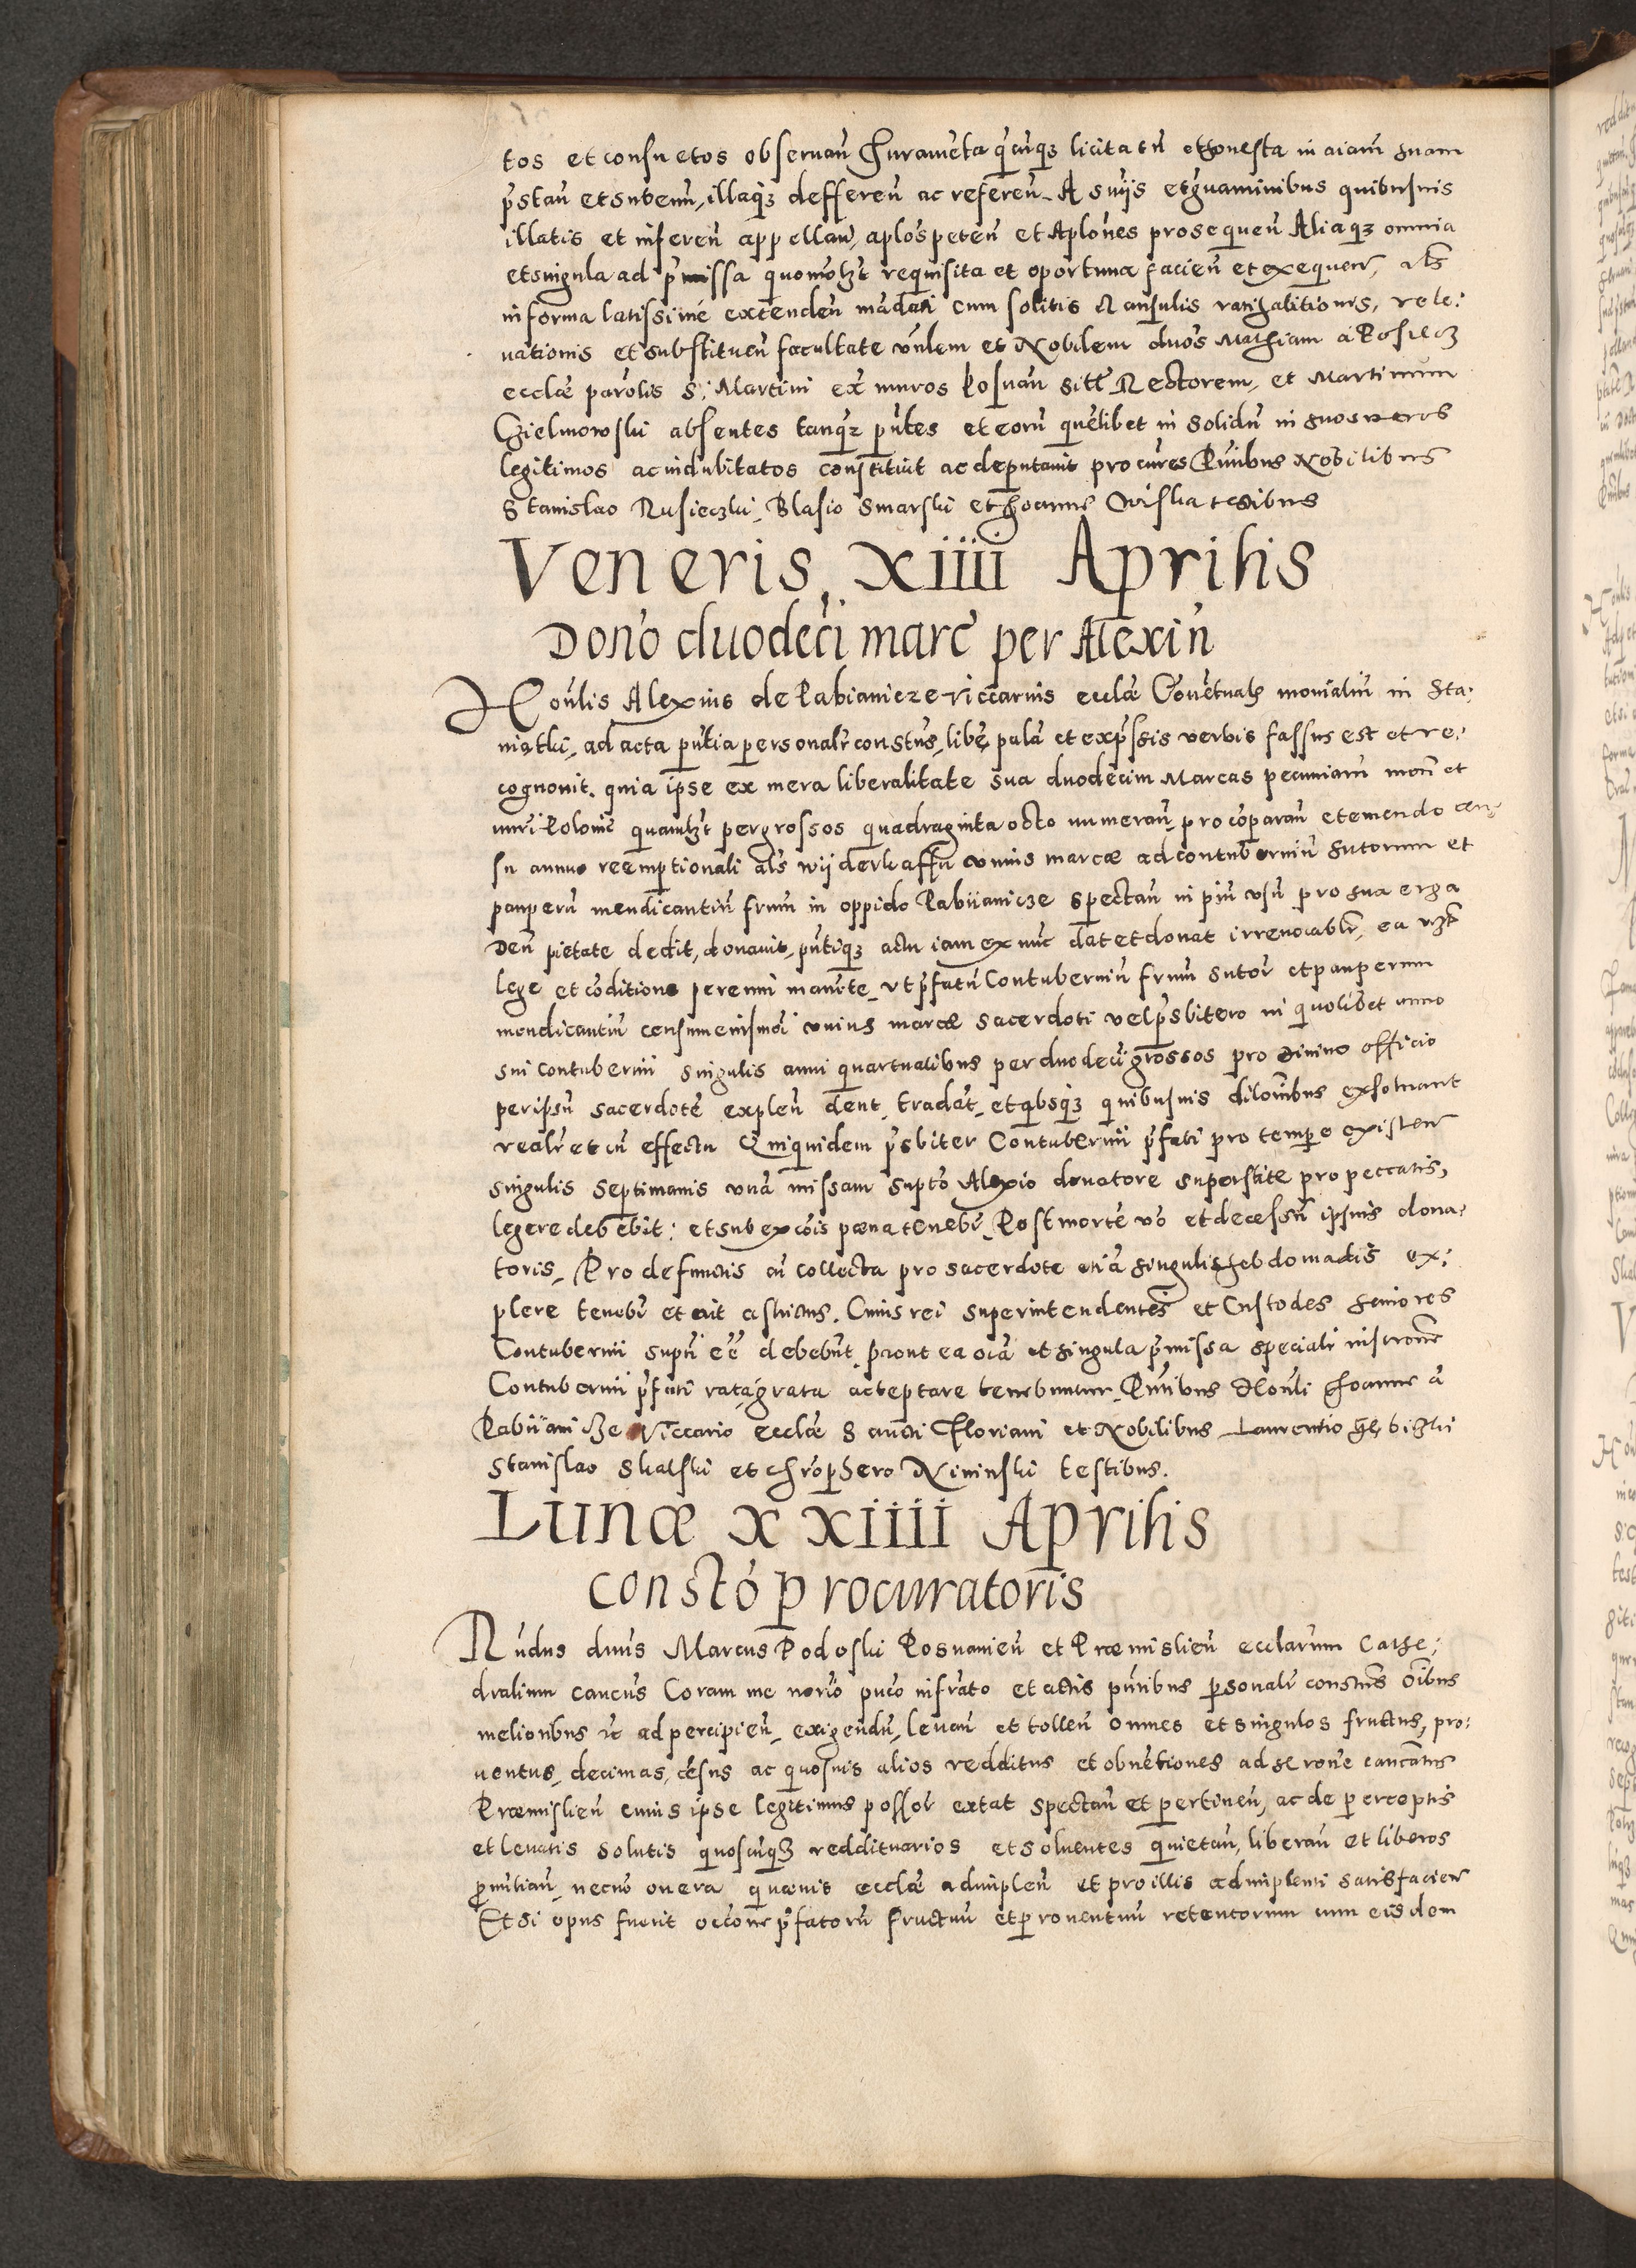 tos et consuetos observañ Juraméta q̃cúqȝ licita tñ et honesta in aiam suam
p̃stañ et subeuñ, illaqȝ defferen̄ ac referen̄. A suijs et gvaminibus quibusvis
illatis et inferen̄ appellan̄, aplos peten̄ et Aplones prosequen̄ Aliaqȝ omnia
et singula ad p̃missa quomolȝt requisita et oportuna facien̄ et exequen̄, als
in forma latissimé extenden̄ mãdati cum solitis clausulis ratihabitionis, rele:
vationis et substituen̄ facultate vn̄lem et Nobilem dnos Mathiam a Kosiecȝ
ecclæ parolis S: Martini ex̃ muros Posnan̄ sitæ Rectorem, et Martinum
Czielmowski absentes tanqȝ p̃ntes et eorũ quẽlibet in solidũ in suos veros
legitimos ac indubitatos constituit ac deputavit procures Pñtibus Nobilibus
Stanislao Rusieczki, Blasio Smarski et Joanne Oviska testibus
Veneris XIIII Aprilis
Dono duodeci marc̃ per Alexiũ
Hon̄lis Alexius de Pabianicze viccarius ecclæ Cõvẽtualȝ monialiũ in Sta:
niątki, ad acta p̃ntia personalr constus, libẽ, palã et exp̃ssis verbis fassus est et re:
cognovit. quia ipse ex mera liberalitate sua duodecim Marcas pecuniarũ mon̄ et
nũri Polonic̃ quamlȝt per grossos quadraginta octo numeran̄, pro cõparan̄ et emendo cen:
su annuo reemptionali als wijderkaffu vnius marcæ ad contuberniũ sutorum et
pauperũ mendicantiũ frum̃ in oppido Pabiianicze spectan̄ in piũ vsũ pro sua erga
Deũ pietate dedit, donavit, p̃ntiqȝ actu iam ex nũc dat et donat irrevocablr, ea vȝt
lege et cõditione perenni manẽte, vt p̃fatũ Contuberniũ frum̃ sutoȓ et pauperum
mendicantiũ censum eiusmoi vnius marcæ sacerdoti vel p̃sbitero in quolibet anno
sui contubernii singulis anni quartualibus per duodeci grossos pro divino officio
per ipsũ sacerdotẽ explen̄ dent, tradãt, et q̃bsqȝ quibusvis dilonibus exsolvant
realr et cũ effectu Quiquidem p̃sbiter Contubernii p̃fati pro tempe existen̄
singulis septimanis vnã missam supto Alexio donatore superstite pro peccatis,
legere debebit: et sub excois pœna tenebr̃. Post mortẽ vo et decessũ ipsius dona:
toris, Pro defunctis cũ collecta pro sacerdote etiã singulis hebdomadis ex:
plere tenebr̃ et erit astrictus. Cuius rei superintendentes et Custodes seniores
Contubernii supñ eẽ debebũt, prout ea oia et singula p̃missa speciali inscrone
Contubernii p̃fati rata, grata acceptare tenebuntur, Pñtibus Hon̄li Joanne á
Pabiianicȝe Viccario ecclæ Sancti Floriani et Nobilibus Laurentio Gębiczki
Stanislao Skalski et Chrophero Nininski testibus.
Lunæ XXIIII Aprilis
Constó Procuratoris
Rñdus dnus Marcus Podoski Posnanien̄ et Præmislien̄ ecclarum Cathe:
dralium canc̃us Coram me norio puco infrãto et actis p̃ntibus psonalr constus oibus
melioribus ꝛc ad percipien̄, exigendũ, levan̄ et tollen̄ omnes et singulos fructus, pro:
ventus, decimas, cẽsus ac quosvis alios redditus et obvẽtiones ad se rone cancatus
Præmislien̄ cuius ipse legitimus possor extat spectan̄ et pertinen̄, ac de perceptis
et levatis solutis quoscũqȝ reddituarios et solventes quietan̄, liberan̄ et liberos
p̃nũtian̄, necnõ onera quævis ecclæ adimplen̄ et pro illis adimpleri satisfacien̄
Et si opus fuerit occone p̃fatorũ fructuũ et proventuũ retentorum cum eisdem